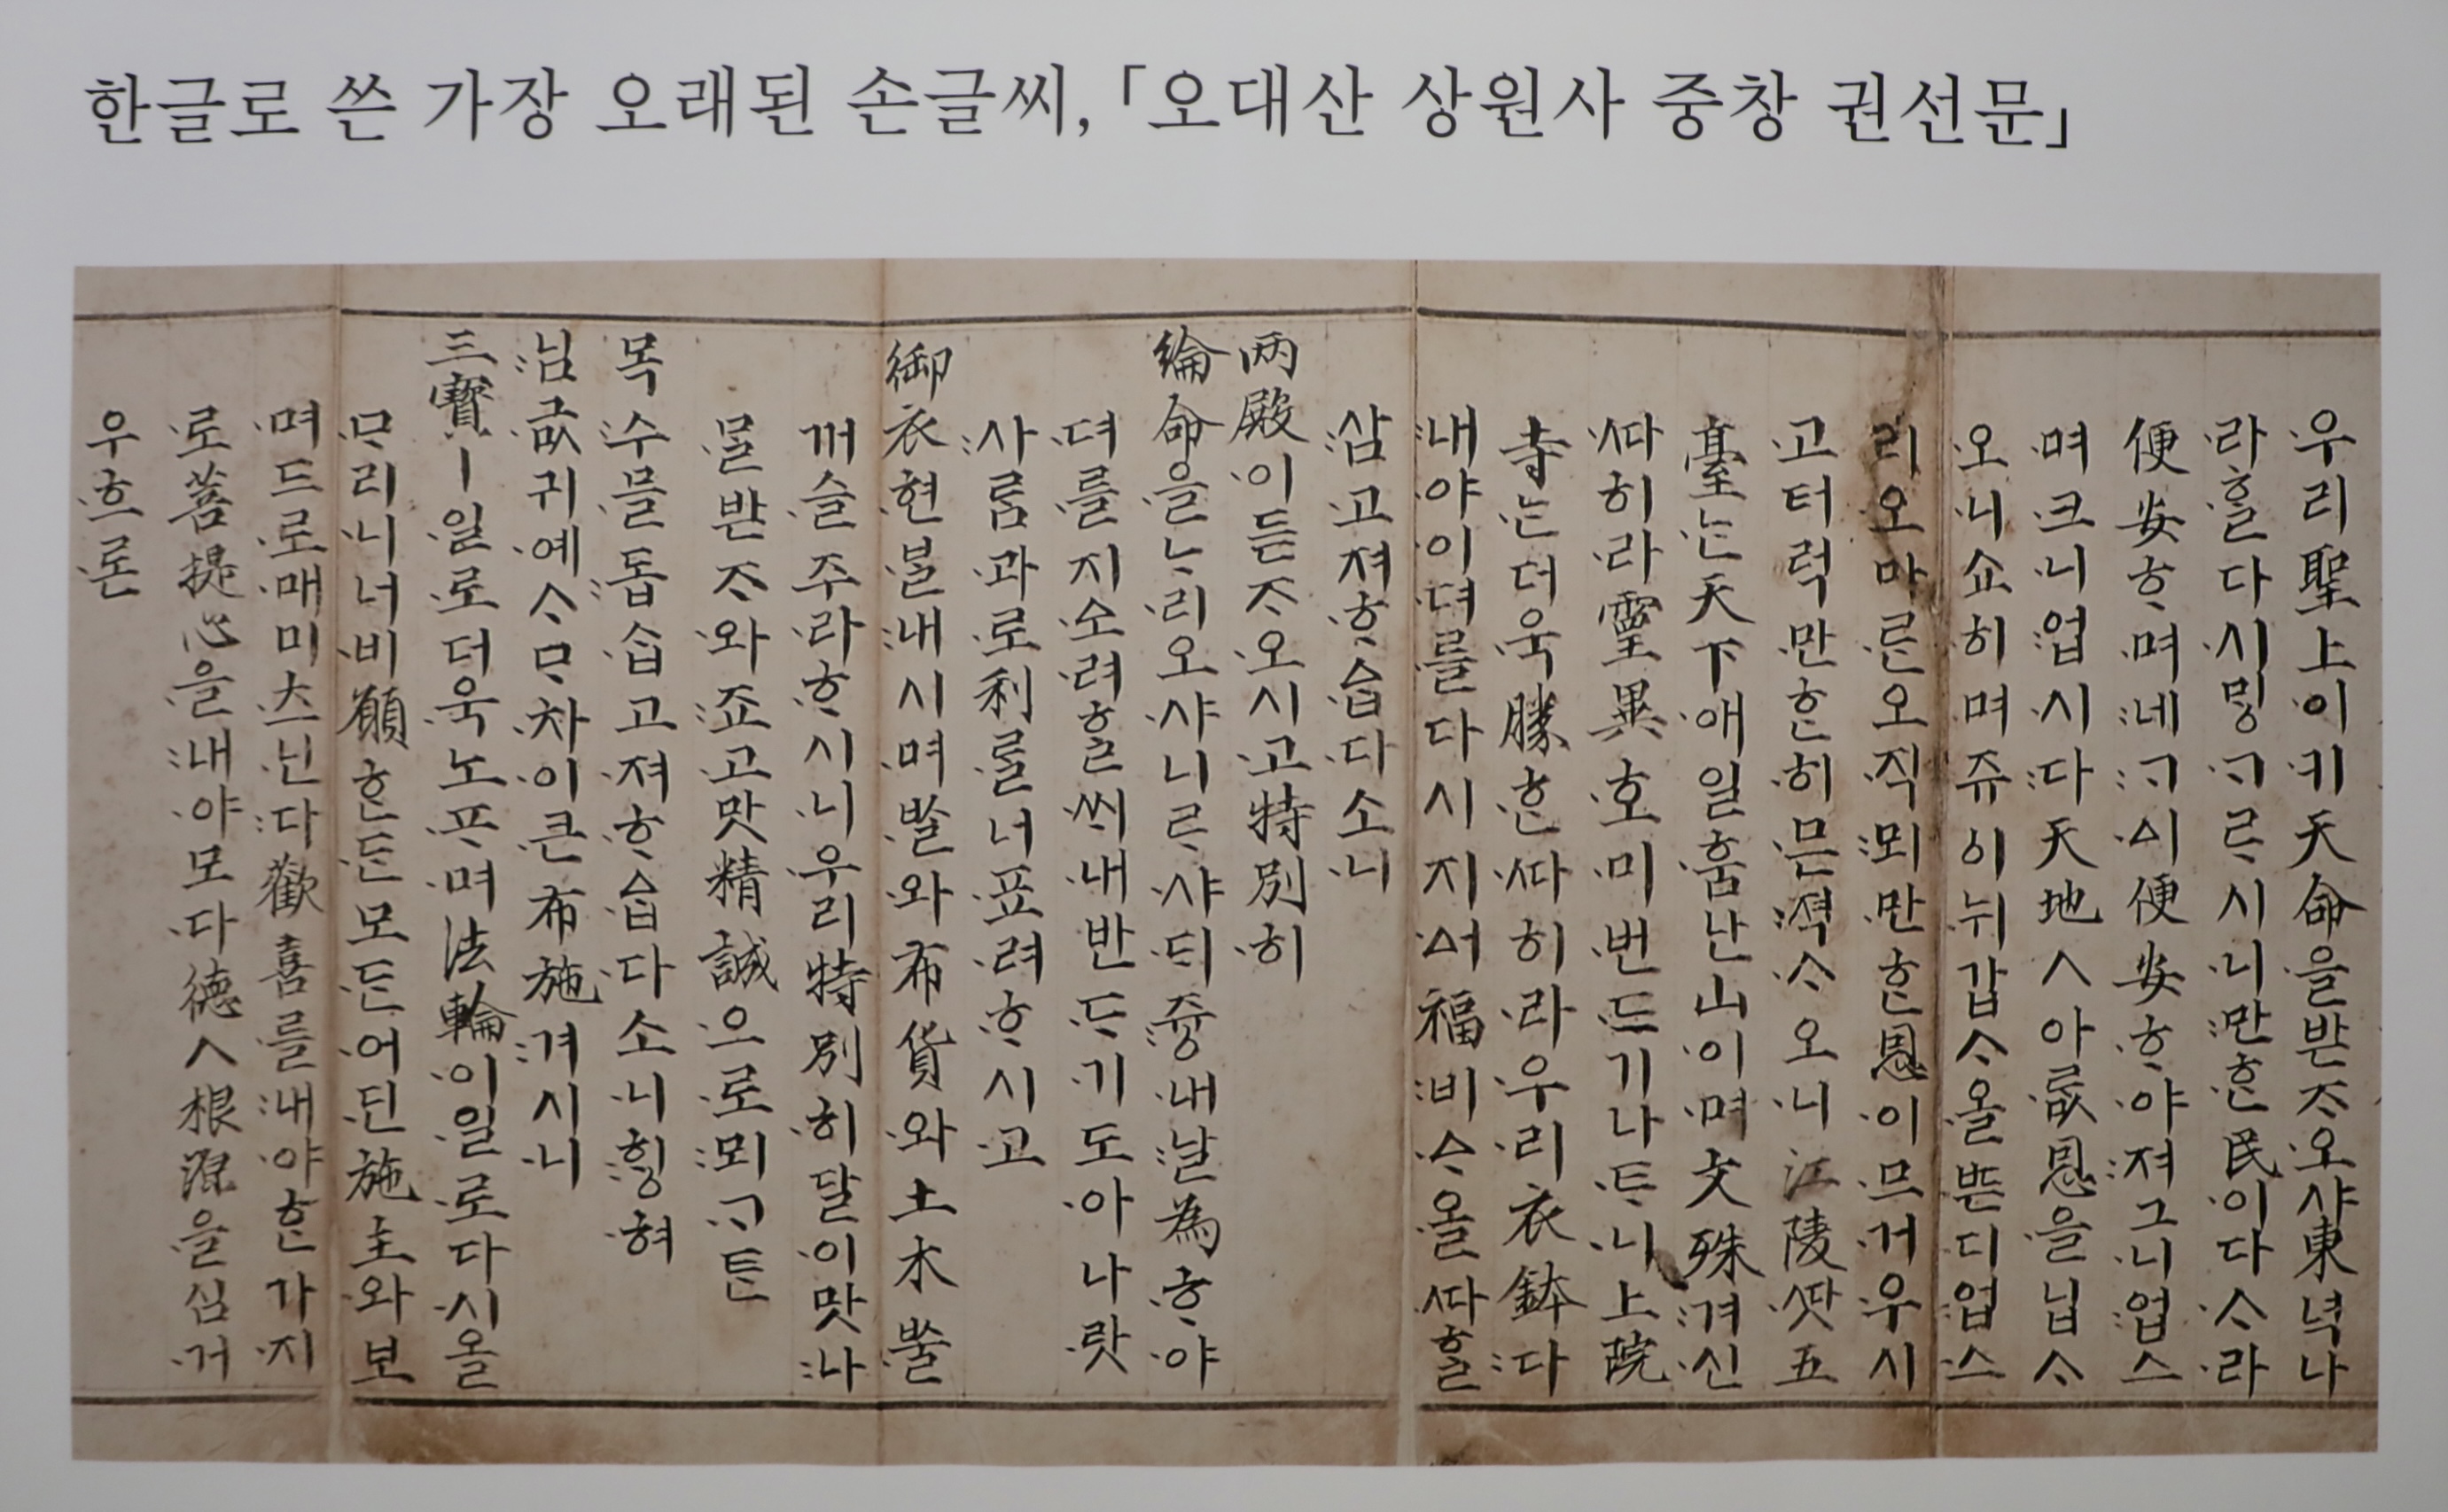 한글로 쓴 가장 오래된 손글씨, 「오대산 상원사 중창 권선문」
우리聖上이키天命을받ᄌᆞ오샤東녁나
라ᄒᆞᆯ다시ᄆᆡᇰᄀᆞᄅᆞ시니만ᄒᆞᆫ民이다ᄉᆞ라
便安ᄒᆞ며네ᄀᆞᅀᅵ便安ᄒᆞ야져그니업스
며크니업시다天地ㅅ아ᄅᆞᇝ恩을닙ᄉᆞ
오니쇼히며쥬ᅌᅵ뉘갑ᄉᆞ올ᄠᅳ디업스
리오마ᄅᆞᆫ오직뫼만ᄒᆞᆫ恩이므거우시
고터럭만ᄒᆞᆫ히믄젹ᄉᆞ오니江陵ᄯᅡᆺ五
臺ᄂᆞᆫ天下애일훔난山이며文殊겨신
ᄯᅡ히라靈異호미번드기나ᄐᆞ니上院
寺ᄂᆞᆫ더욱勝ᄒᆞᆫᄯᅡ히라우리衣鉢다
내야이뎌를다시지ᅀᅥ福비ᅀᆞ올ᄯᅡᄒᆞᆯ
삼고져ᄒᆞᅀᆞᆸ다소니
兩殿이듣ᄌᆞ오시고特別히
綸命을ᄂᆞ리오샤니ᄅᆞ샤ᄃᆡ쥬ᇰ내날為ᄒᆞ야
뎌를지소려ᄒᆞᆯᄊᆡ내반ᄃᆞ기도아나랏
사ᄅᆞᆷ과로利ᄅᆞᆯ너표려ᄒᆞ시고
御衣현ᄇᆞᆯ내시며ᄡᆞᆯ와布貨와土木ᄡᅮᆯ
꺼슬주라ᄒᆞ시니우리特別히달이맛나
ᄆᆞᆯ받ᄌᆞ와죠고맛精誠으로뫼ᄀᆞᄐᆞᆫ
목수믈돕ᅀᆞᆸ고져ᄒᆞᅀᆞᆸ다소니ᄒᆡᇰ혀
님긊귀예ᄉᆞᄆᆞ차이큰布施겨시니
三寶ㅣ일로더욱노ᄑᆞ며法輪이일로다시올
ᄆᆞ리니너비願ᄒᆞᆫᄃᆞᆫ모ᄃᆞᆫ어딘施主와보
며드로매미츠닌다歡喜를내야ᄒᆞᆫ가지
로菩提心을내야모다德ㅅ根源을심거
우흐론